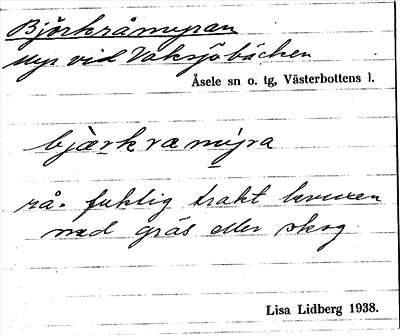 Björkråmyran
myr vid Vaksjöbäcken
Åsele sn o. tg, Västerbottens l.
bjärkramýra
rå. fuktig trakt bevuxen
med gräs eller skog
Lisa Lidberg 1938.